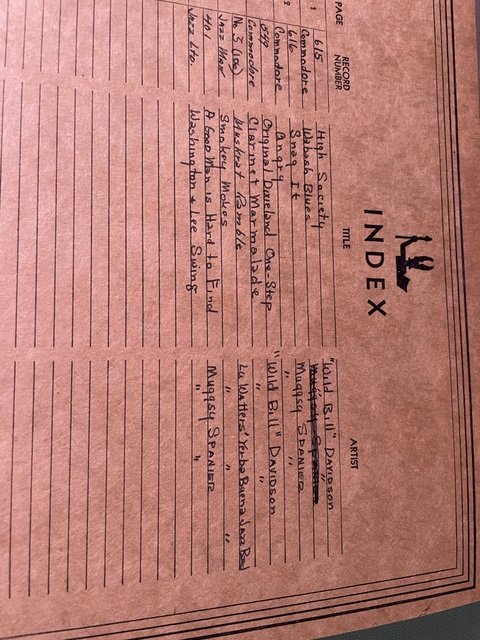 INDEX
PAGE RECORD NUMBER TITLE ARTIST
1 615 High Society "Wild Bill" Davidson
Commodore Wabash Blues Muggsy Spanier "
2 616 Snag It Muggsy Spanier
Commodore Angry " "
549 Original Dixieland One-Step "Wild Bill" Davidson
Commodore Clarinet Marmalade " "
No. 3 Muskrat Ramble Lu Watters' Yerba Buena Jazz Band
Jazz Man Smokey Mokes " " "
401 A Good Man is Hard to Find Muggsy Spanier
Jazz Ltd. Washington & Lee Swing " "